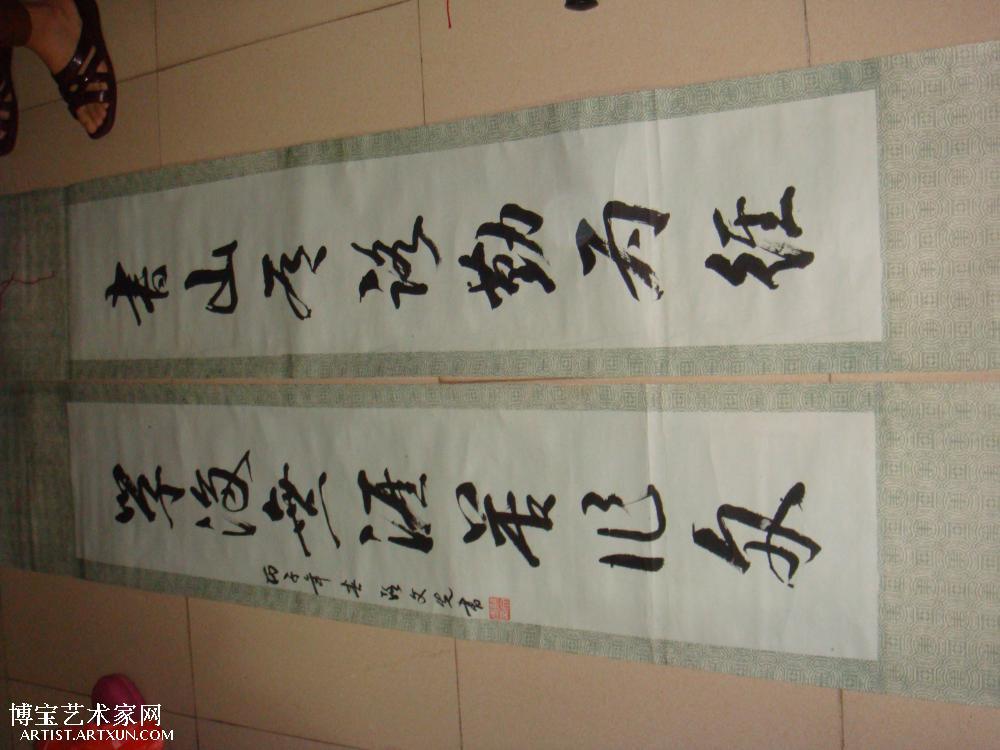 书山有路勤为径
学海无涯苦作舟
丙子年春 张文光书
博宝艺术家网
ARTIST.ARTXUN.COM